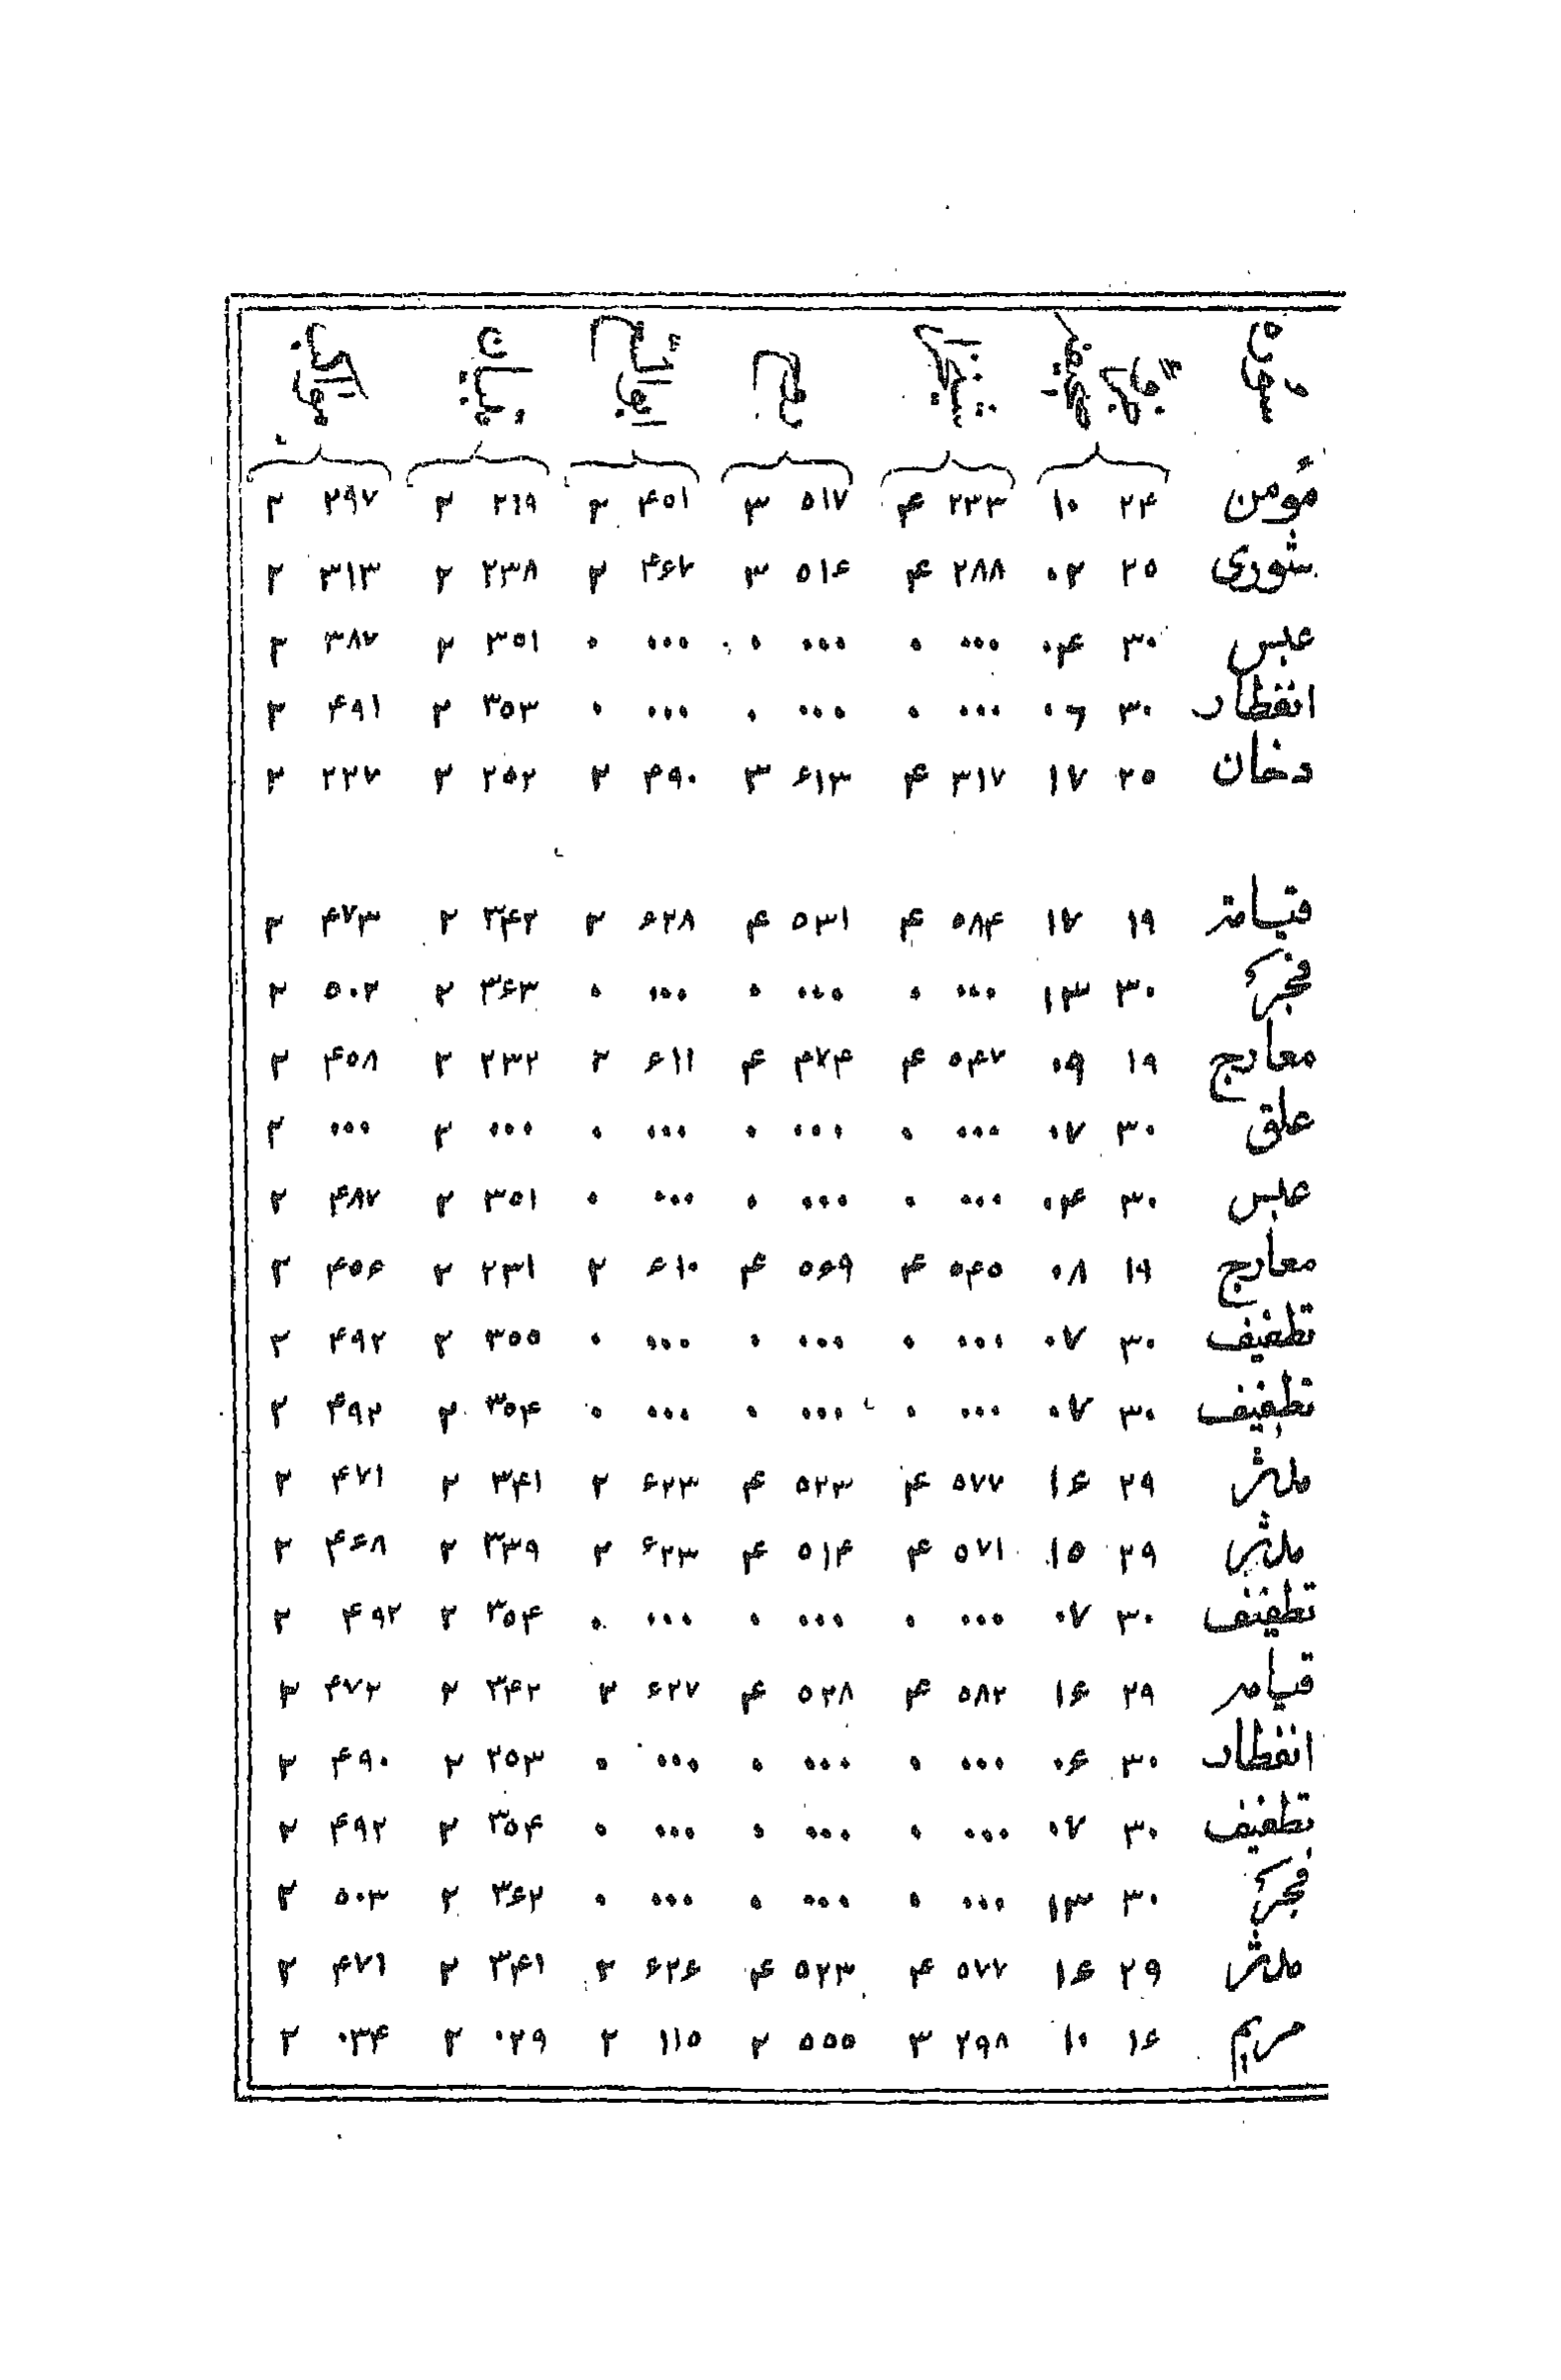 مؤمن ۲۴ ۱۰ ۲۳۳ ۴ ۵۱۷ ۳ ۴۵۱ ۲ ۲۱۹ ۲ ۲۹۷ ۲
شوری ۲۵ ۰۲ ۲۸۸ ۴ ۵۱۶ ۳ ۴۶۷ ۲ ۲۳۸ ۲ ۳۱۳ ۲
عبس ۳۰ ۰۴ ۰۰۰ ۰ ۰۰۰ ۰ ۰۰۰ ۰ ۳۵۱ ۲ ۳۸۷ ۲
انفطار ۳۰ ۰۶ ۰۰۰ ۰ ۰۰۰ ۰ ۰۰۰ ۰ ۳۵۳ ۲ ۴۹۱ ۲
دخان ۲۵ ۱۷ ۳۱۷ ۴ ۶۱۳ ۳ ۴۹۰ ۲ ۲۵۲ ۲ ۲۲۷ ۲
قیامة ۱۹ ۱۷ ۵۸۴ ۴ ۵۳۱ ۴ ۶۲۸ ۲ ۳۴۲ ۲ ۴۷۳ ۲
فجر ۳۰ ۱۳ ۰۰۰ ۰ ۰۰۰ ۰ ۰۰۰ ۰ ۳۶۳ ۲ ۵۰۲ ۲
معارج ۱۹ ۰۹ ۵۴۷ ۴ ۴۷۴ ۴ ۶۱۱ ۲ ۲۳۲ ۲ ۴۵۸ ۲
علق ۳۰ ۰۷ ۰۰۰ ۰ ۰۰۰ ۰ ۰۰۰ ۰ ۰۰۰ ۲ ۰۰۰ ۲
عبس ۳۰ ۰۴ ۰۰۰ ۰ ۰۰۰ ۰ ۰۰۰ ۰ ۳۵۱ ۲ ۴۸۷ ۲
معارج ۱۹ ۰۸ ۵۴۵ ۴ ۵۶۹ ۴ ۶۱۰ ۲ ۲۳۱ ۲ ۴۵۶ ۲
تطفیف ۳۰ ۰۷ ۰۰۰ ۰ ۰۰۰ ۰ ۰۰۰ ۰ ۳۵۵ ۲ ۴۹۲ ۲
تطفیف ۳۰ ۰۷ ۰۰۰ ۰ ۰۰۰ ۰ ۰۰۰ ۰ ۳۵۴ ۲ ۴۹۲ ۲
مدثر ۲۹ ۱۶ ۵۷۷ ۴ ۵۲۳ ۴ ۶۲۳ ۲ ۳۴۱ ۲ ۴۷۱ ۲
مدثر ۲۹ ۱۵ ۵۷۱ ۴ ۵۱۴ ۴ ۶۲۳ ۲ ۳۳۹ ۲ ۴۶۸ ۲
تطفیف ۳۰ ۰۷ ۰۰۰ ۰ ۰۰۰ ۰ ۰۰۰ ۰ ۳۵۴ ۲ ۴۹۲ ۲
قیامه ۲۹ ۱۶ ۵۸۲ ۴ ۵۲۸ ۴ ۶۲۷ ۲ ۳۴۲ ۲ ۴۷۲ ۲
انفطار ۳۰ ۰۶ ۰۰۰ ۰ ۰۰۰ ۰ ۰۰۰ ۰ ۲۵۳ ۲ ۴۹۰ ۲
تطفیف ۳۰ ۰۷ ۰۰۰ ۰ ۰۰۰ ۰ ۰۰۰ ۰ ۳۵۴ ۲ ۴۹۲ ۲
فجر ۳۰ ۱۳ ۰۰۰ ۰ ۰۰۰ ۰ ۰۰۰ ۰ ۳۶۲ ۲ ۵۰۳ ۲
مدثر ۲۹ ۱۶ ۵۷۷ ۴ ۵۲۳ ۴ ۶۲۶ ۲ ۳۴۱ ۲ ۴۷۱ ۲
مریم ۱۶ ۱۰ ۲۹۸ ۳ ۵۵۵ ۲ ۱۱۵ ۲ ۰۲۹ ۲ ۰۳۴ ۲